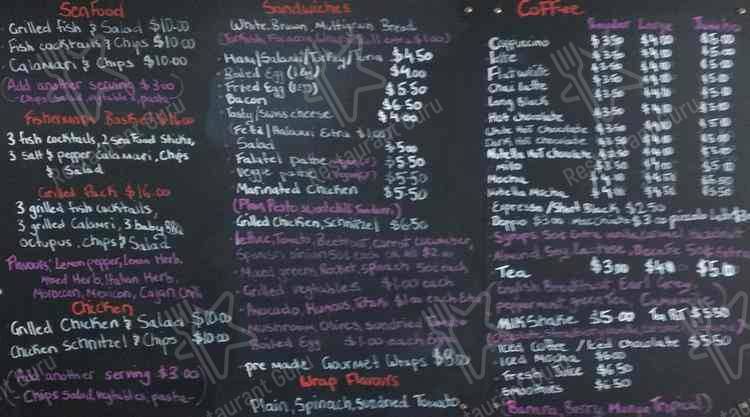 Seafood
Grilled fish & Salad $10.00
Fish cocktails & Chips $10.00
Calamari & Chips $10.00
(Add another serving $3.00
- Chips, Salad, vegetables, pasta -
Fisherman's Basket $16.00
3 fish cocktails, 2 sea food sticks,
3 salt & pepper Calamari, Chips
& Salad
Grilled Pack $16.00
3 grilled fish cocktails,
3 grilled Calamari, 3 baby BBQ
octupus, chips & Salad
Flavours: Lemon pepper, Lemon Herb,
Mixed Herb, Italian Herb,
Moroccan, Mexican, Cajan, Chilli
Chicken
Grilled Chicken & Salad $10.00
Chicken schnitzel & Chips $10.00
(Add another serving $3.00)
- Chips, Salad, vegtables, pasta -
Sandwiches
White, Brown, Multigrain Bread
- Ham/Salami/Turkey/Tuna $4.50
- Boiled Egg $4.00
- Fried Egg $5.50
Bacon $6.50
- Tasty/Swiss cheese $4.00
- Feta/Haloumi Extra $1.00
Salad $5.00
- Falafel pattie $5.50
- Veggie pattie $5.50
- Marinated Chicken $5.50
Grilled Chicken, Schnitzel $6.50
- Lettuce, Tomato, Beetroot, Carrot, Cucumber,
- Mixed greens, Rocket, Spinach 50c each
- Grilled vegetables $1.00 each
- Avocado, Humous, $1.00 each
Mushroom, Olives, sundried
Boiled Egg $1.00 each
pre made! Gourmet Wraps $8.00
Wrap Flavours
Plain, Spinach, Sundried Tomato
Coffee
Regular Large Jumbo
Cappuccino $3.50 $4.00 $5.00
Latte $3.50 $4.00 $5.00
Flat white $3.50 $4.00 $5.00
Chai latte $3.50 $4.00 $5.00
Long Black $3.50 $4.00 $5.00
Hot chocolate $3.50 $4.00 $5.00
White Hot chocolate
Dark Hot chocolate
Nutella Hot chocolate
Milo
Mocha
Nutella Mocha
Espresso/Short Black $2.50
Tea $3.00 $4.00 $5.00
English Breakfast, Earl Grey,
Milkshake $5.00 $5.50
Iced Coffee / Iced chocolate $5.50
- Iced Mocha $6.00
- Fresh Juice $6.50
- Smoothies $6.50
(Banana, Berry, Mango, Tropical)
Restaurant Guru